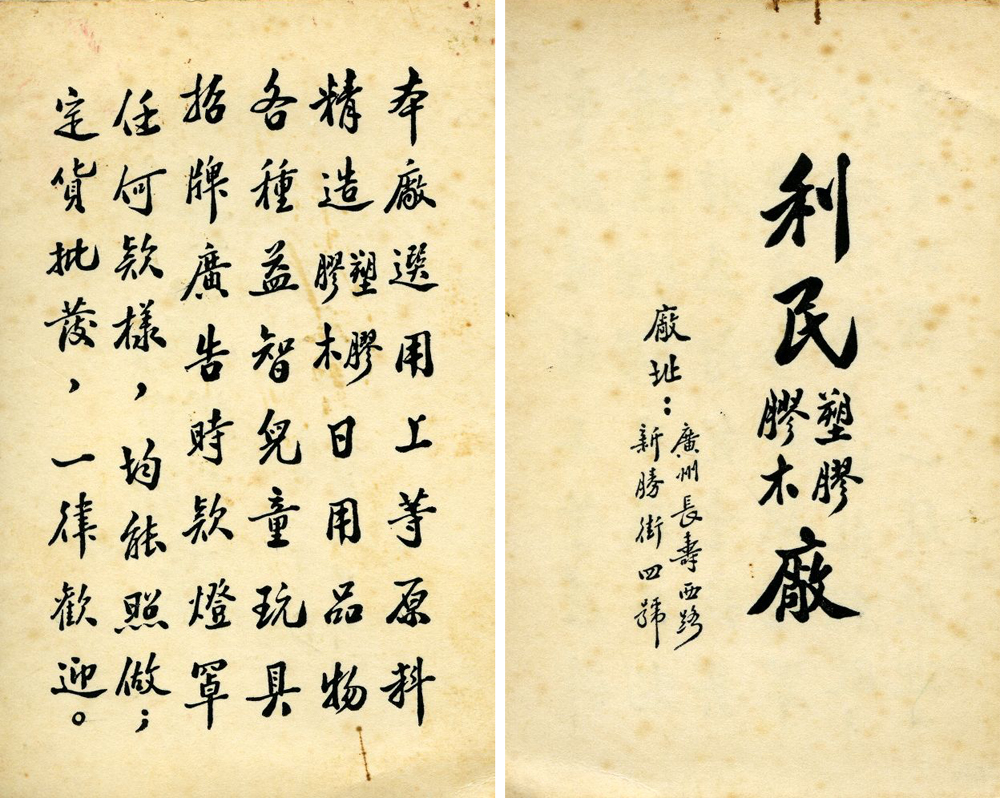 本廠選用上等原料
精造塑膠膠木日用品物
各種益智兒童玩具
招牌廣告時欵燈罩
任何欵樣，均能照做；
定貨批發，一律歡迎。
利民塑膠膠木廠
廠址：
廣州長壽西路
新勝街四號